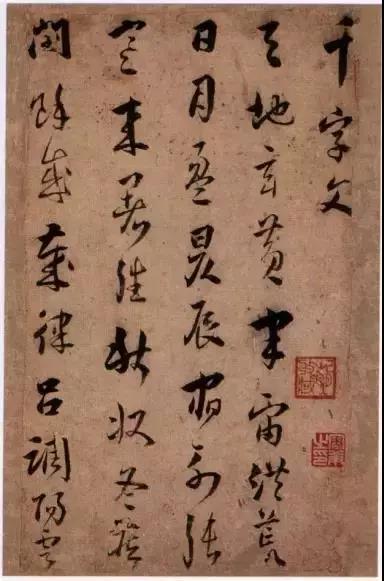 千字文
天地玄黄宇宙洪荒
日月盈昃辰宿列張
寒来暑往秋收冬藏
閏餘成歲律吕調陽雲